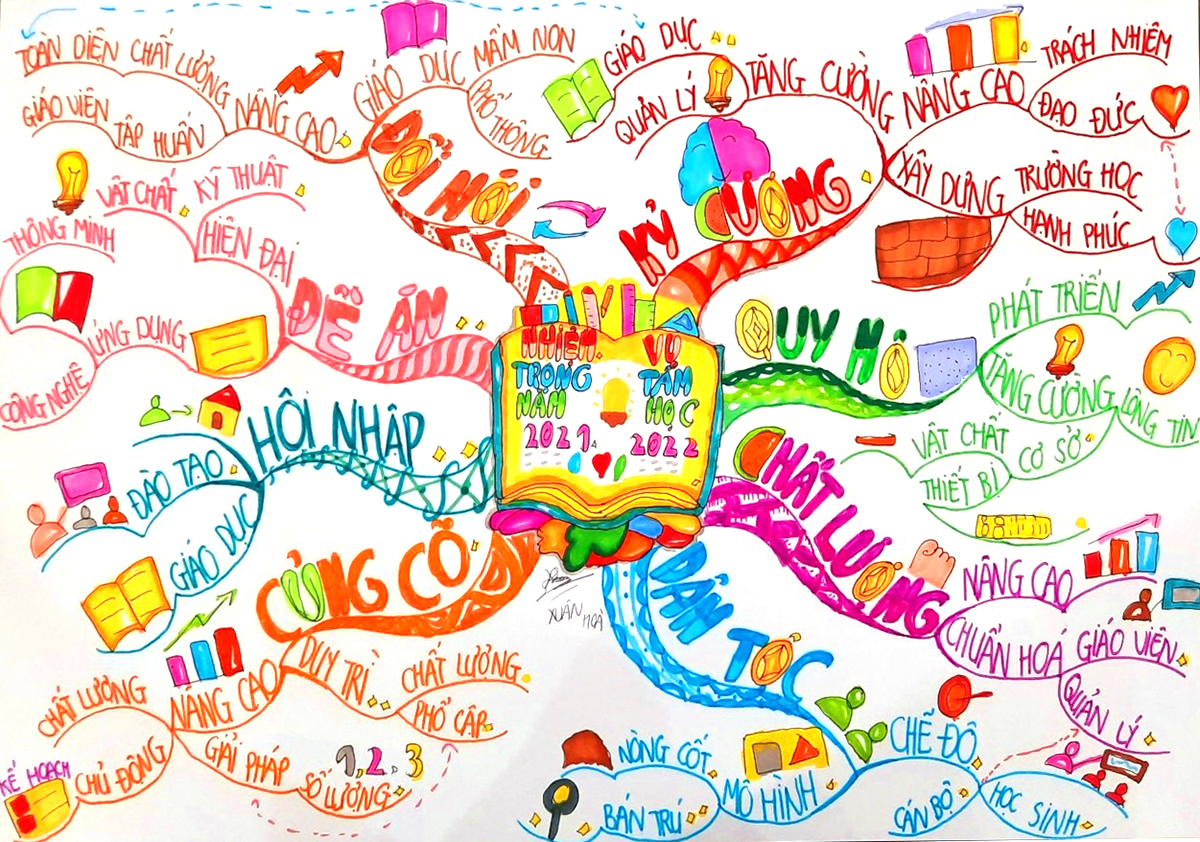 NHIỆM VỤ
TRỌNG TÂM
NĂM HỌC
2021 2022
XUÂN HOÀ
KỶ CƯƠNG
TĂNG CƯỜNG
GIÁO DỤC
QUẢN LÝ
NÂNG CAO
TRÁCH NHIỆM
ĐẠO ĐỨC
XÂY DỰNG
TRƯỜNG HỌC
HẠNH PHÚC
QUY MÔ
PHÁT TRIỂN
TĂNG CƯỜNG
LÒNG TIN
CƠ SỞ
VẬT CHẤT
THIẾT BỊ
CHẤT LƯỢNG
NÂNG CAO
CHUẨN HOÁ
GIÁO VIÊN
QUẢN LÝ
DÂN TỘC
CHẾ ĐỘ
CÁN BỘ
HỌC SINH
MÔ HÌNH
NÒNG CỐT
BÁN TRÚ
CỦNG CỐ
DUY TRÌ
CHẤT LƯỢNG
PHỔ CẬP
NÂNG CAO
CHẤT LƯỢNG
CHỦ ĐỘNG
KẾ HOẠCH
GIẢI PHÁP
SỐ LƯỢNG
1, 2, 3
HỘI NHẬP
ĐÀO TẠO
GIÁO DỤC
ĐỀ ÁN
HIỆN ĐẠI
VẬT CHẤT
KỸ THUẬT
ỨNG DỤNG
THÔNG MINH
CÔNG NGHỆ
ĐỔI MỚI
GIÁO DỤC
MẦM NON
PHỔ THÔNG
NÂNG CAO
TOÀN DIỆN CHẤT LƯỢNG
GIÁO VIÊN
TẬP HUẤN